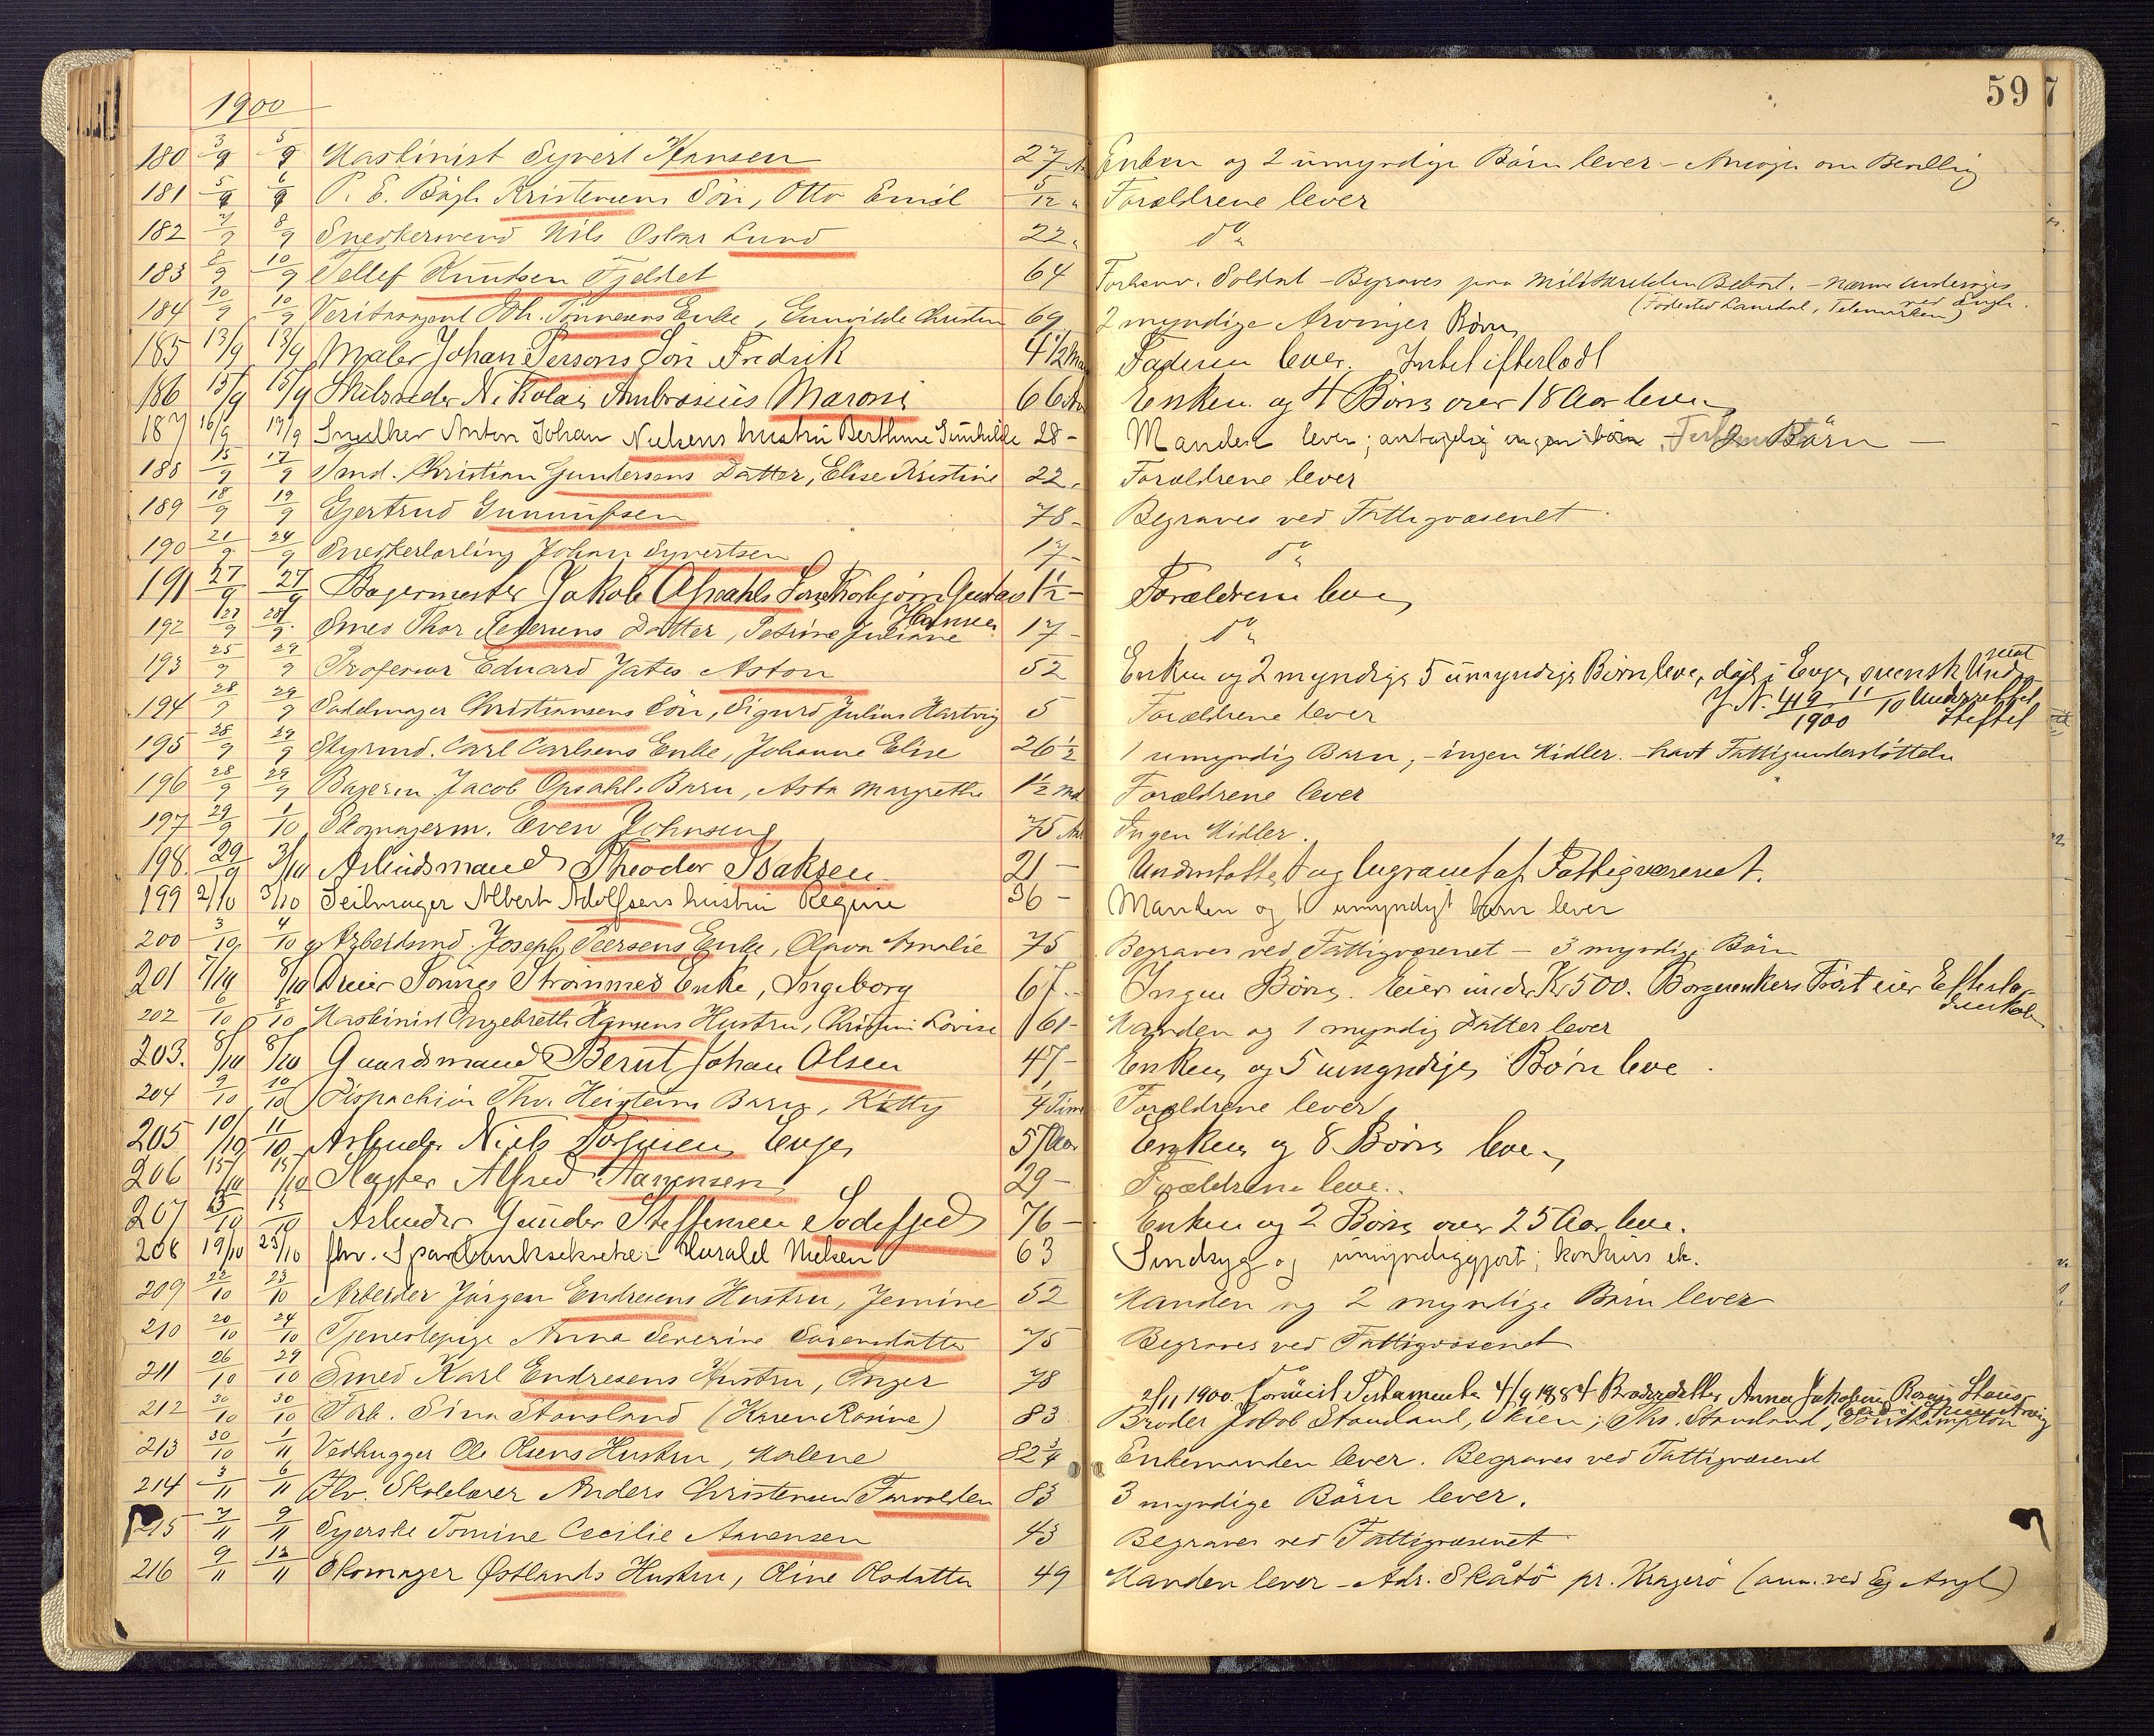 1900
59 7
180 3/9 5/9 Maskinist Syvert Hansen 27 Enken og 2 umyndige Börn lever - om Bevilling
181 5/9 6/9 P. E. Bögh Kristensens Sön, Otto Emil 5/12 Forældrene lever
182 7/9 8/9 Snedkersvend Nils Oskar Lund 22 do
183 8/9 10/9 Tellef Knudsen Fjeldet 64 Forhenv. Soldat - Begraves paa Bekost. - nærm undersöges
(Födested Laurdal, Telemarken) ved Engh.
184 10/9 10/9 Veritasagent Tönnesens Enke, Gunvilde 69 2 myndige Arvinger Börn
185 13/9 13/9 Maler Johan Perssons Sön Fredrik 4 1/2 Faderen lever. Intet efterladt
186 15/9 15/9 Nikolai Ambrosius Maroni 66 Enken og 4 Börn over 18 Aar leve
187 16/9 17/9 Snedker Anton Johan Nielsens hustru Berthine Gunhilde 28 - Manden lever; antagelig ingen börn 2 Börn -
188 15/9 17/9 Smd. Christian Gundersens Datter, Elise Kristine 22 Forældrene lever
189 18/9 19/9 Gjertrud Gunnufsen 78 - Begraves ved Fattigvæsenet
190 21/9 24/9 Snedkerlærling Johan Syvertsen 17 - do
191 27/9 27/9 Bagermester Jakob Opsahls Sön Thorbjörn Gustav 1 1/2 - Forældrene leve
192 27/9 28/9 Smed Thor Pedersens Datter, Petrine Juliane Hansen 17 - do
193 25/9 29/9 Professor Eduard Jates Aston 52 Enken og 2 myndige 5 umyndige Börn leve, död i Evje, svensk Unders
J N. 419/1900 11/10
194 28/9 29/9 Sadelmager Christiansens Sön, Sigurd Julius Hartvig 5 Forældrene lever
195 28/9 29/9 Styrmd. Carl Carlsens Enke, Johanne Elise 26 1/2 1 umyndig Barn, - ingen Midler. - havt Fattigunderstöttelse
196 28/9 29/9 Bagerm Jacob Opsahls Barn, Asta Margrethe 1 1/2 Md Forældrene lever
197 29/9 1/10 Skomagerm. Even Johnsen 75 Aar Ingen Midler.
198. 29/9 3/10 Arbeidsmand Theodor Isaksen 21 - Understöttet og begravet af Fattigvæsenet.
199 2/10 3/10 Seilmager Albert Adolfsens hustru Regine 36 - Manden og 1 umyndigt barn lever
200 3/10 4/10 Arbeidsmd. Joseph Peersens Enke, Olava Amalie 75 Begraves ved Fattigvæsenet - 3 myndige Börn
201 7/10 8/10 Dreier Tönnes Strömmes Enke, Ingeborg 67 - Ingen Börn. Eier under Kr 500. Borgerenkers Tröst eier Efterla-
202 6/10 8/10 Maskinist Ingebreth Hansens Hustru, Kristine Lovise 61 - Manden og 1 myndig Datter lever
203. 8/10 8/10 Gaardsmand Bernt Johan Olsen 47 - Enken og 5 umyndige Börn leve.
204 9/10 10/10 Dispachör Thv. Heisteins Barn, Kitty 4 Time Forældrene lever
205 10/10 11/10 Arbeider Niels Evje 57 Aar Enken og 8 Börn leve
206 15/10 15/10 Slagter Alfred Aanensen 29 - Forældrene leve.
207 15/10 15/10 Arbeider Gunder Steffensen Sodefjed 76 - Enken og 2 Börn over 25 Aar leve.
208 19/10 23/10 fhv. Sparebanksekretær Harald Nielsen 63 Sindsyg og umyndiggjort; konkurs etc.
209 22/10 23/10 Arbeider Jörgen Endresens Hustru, Jemine 52 Manden og 2 myndige Börn lever
210 20/10 24/10 Tjenestepige Anna Severine Sörensdatter 75 Begraves ved Fattigvæsenet
211 26/10 29/10 Smed Karl Endresens Hustru, Inger 78 do
2/11 1900 Testamente 4/9 1884 Broderdatter Anna Jakobine Rosine Stous-
212 30/10 30/10 Frk. Sina Stousland (Karen Rosine) 83 Broder Jakob Stousland, Skien; Ths. Stousland, Southampton
213 30/10 1/11 Vedhugger Ole Olsens Hustru, Malene 82 3/4 Enkemanden lever. Begraves ved Fattigvæsenet
214 3/11 6/11 Fhv. Skolelærer Anders Christensen Farvolden 83 3 myndige Börn lever.
215 7/11 9/11 Syerske Tomine Cecilie Aanensen 43 Begraves ved Fattigvæsenet
216 9/11 12/11 Skomager Østlands Hustru, Oline Olsdatter 49 Manden lever - Adr. Skåtö pr. Kragerö (anm. ved Eg Asyl)